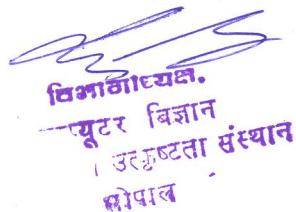 विभागाध्यक्ष.
प्यूटर विज्ञान
उत्कृष्टता संस्थान
भोपाल